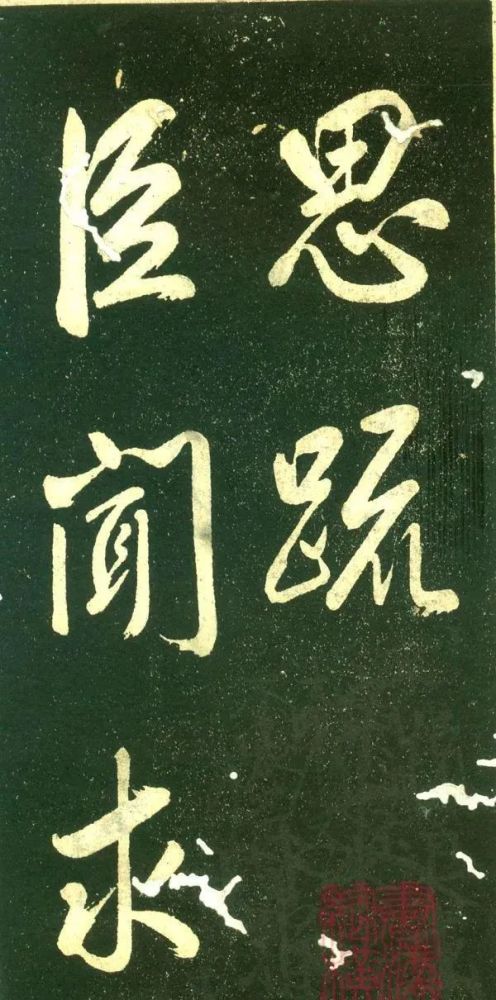 思疏
臣聞求